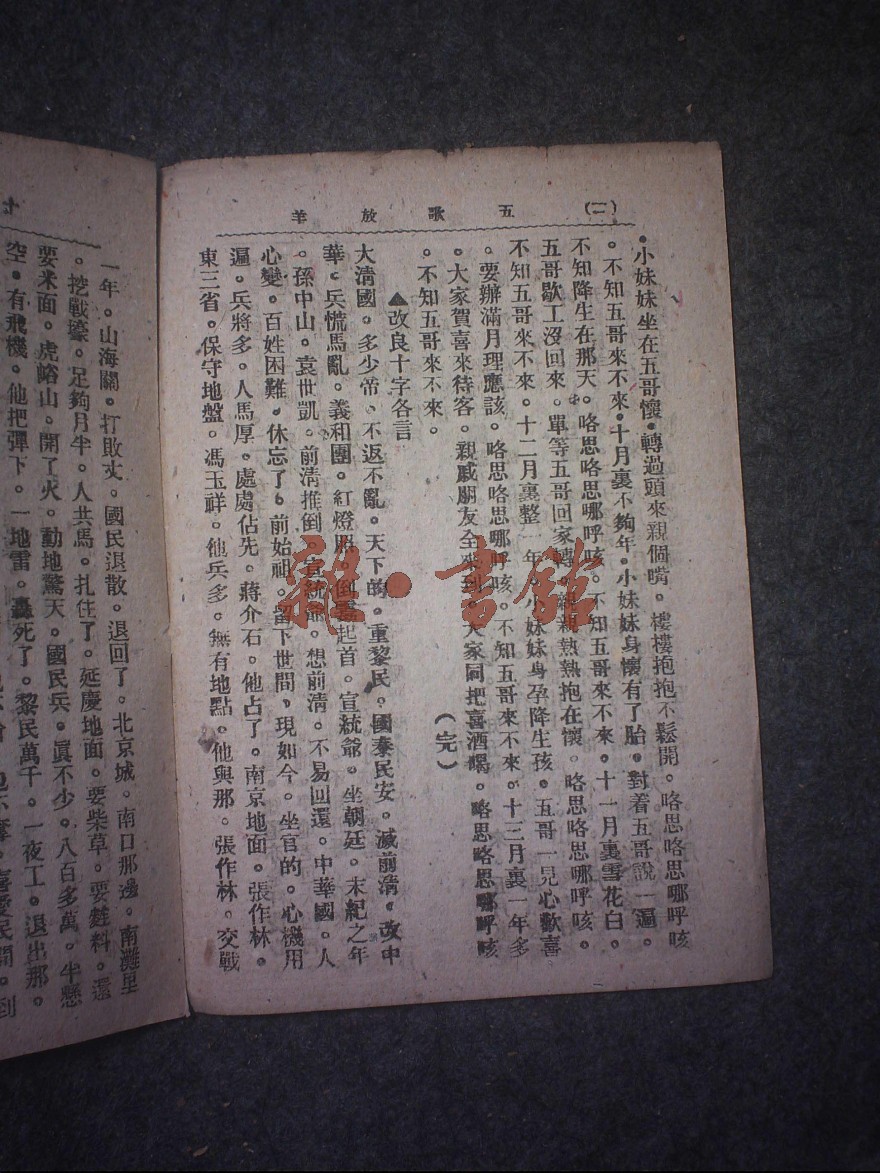 五歌放羊
(二)
。小妹妹坐在五哥懷。轉過頭來親個嘴。樓樓抱抱不鬆開。咯思咯思哪呼咳
。不知五哥來不來。十月裏不夠年。小妹妹身懷有了胎。對着五哥說一遍。
不知降生在那天。咯思咯思哪呼咳。不知五哥來不來。十一月裏雪花白。
五哥歇工沒回來。單等五哥回家轉。親親熱熱抱在懷。咯思咯思哪呼咳。
不知五哥來不來。十二月裏整一年。小妹妹身孕降生孩。五哥一見心歡喜
。要辦滿月理應該。咯思咯思哪呼咳。不知五哥來不來。十三月裏一年多
。大家賀喜來待客。親戚朋友全來到。大家同把喜酒喝。咯思咯思哪呼咳
。不知五哥來不來。
(完)
▲改良十字各言
大清國。多少帝。不返不亂。天下的。重黎民。國泰民安。滅前清。改中
華。兵慌馬亂。義和團。紅燈照。倒塲起首。宣統爺。坐朝廷。末紀之年
。孫中山。袁世凱。前清推倒。宣統爺。想前清。不易回還。中華國。人
心變。百姓困難。休忘了。前始祖。留下世間。現如今。坐官的。心機用
遍。兵將多。人馬厚。處處佔先。蔣介石。他占了。南京地面。張作林。
東三省。保守地盤。馮玉祥。他兵多。無有地點。他與那。張作林。交戰
一年。山海關。打敗丈。國民退散。退回了。北京城。南口那邊。南灘里
。挖戰壕。足夠月半。人共馬。扎住了。延慶地面。要柴草。要麩料。還
要米面。虎峪山。開了火。動地驚天。國民兵。眞不少。八百多萬。半懸
空。有飛機。他把彈下。一地雷。轟死了。黎民萬千。一夜工。退出那。
雜·書館